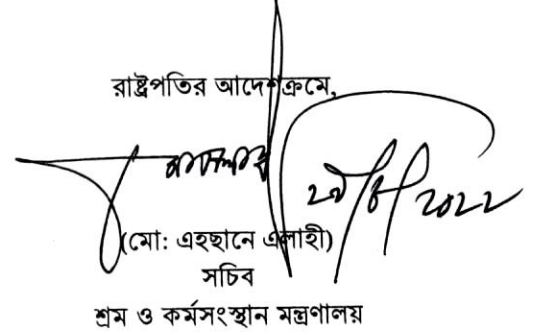 রাষ্ট্রপতির আদেশক্রমে,
(মো: এহছানে এলাহী)
সচিব
শ্রম ও কর্মসংস্থান মন্ত্রণালয়